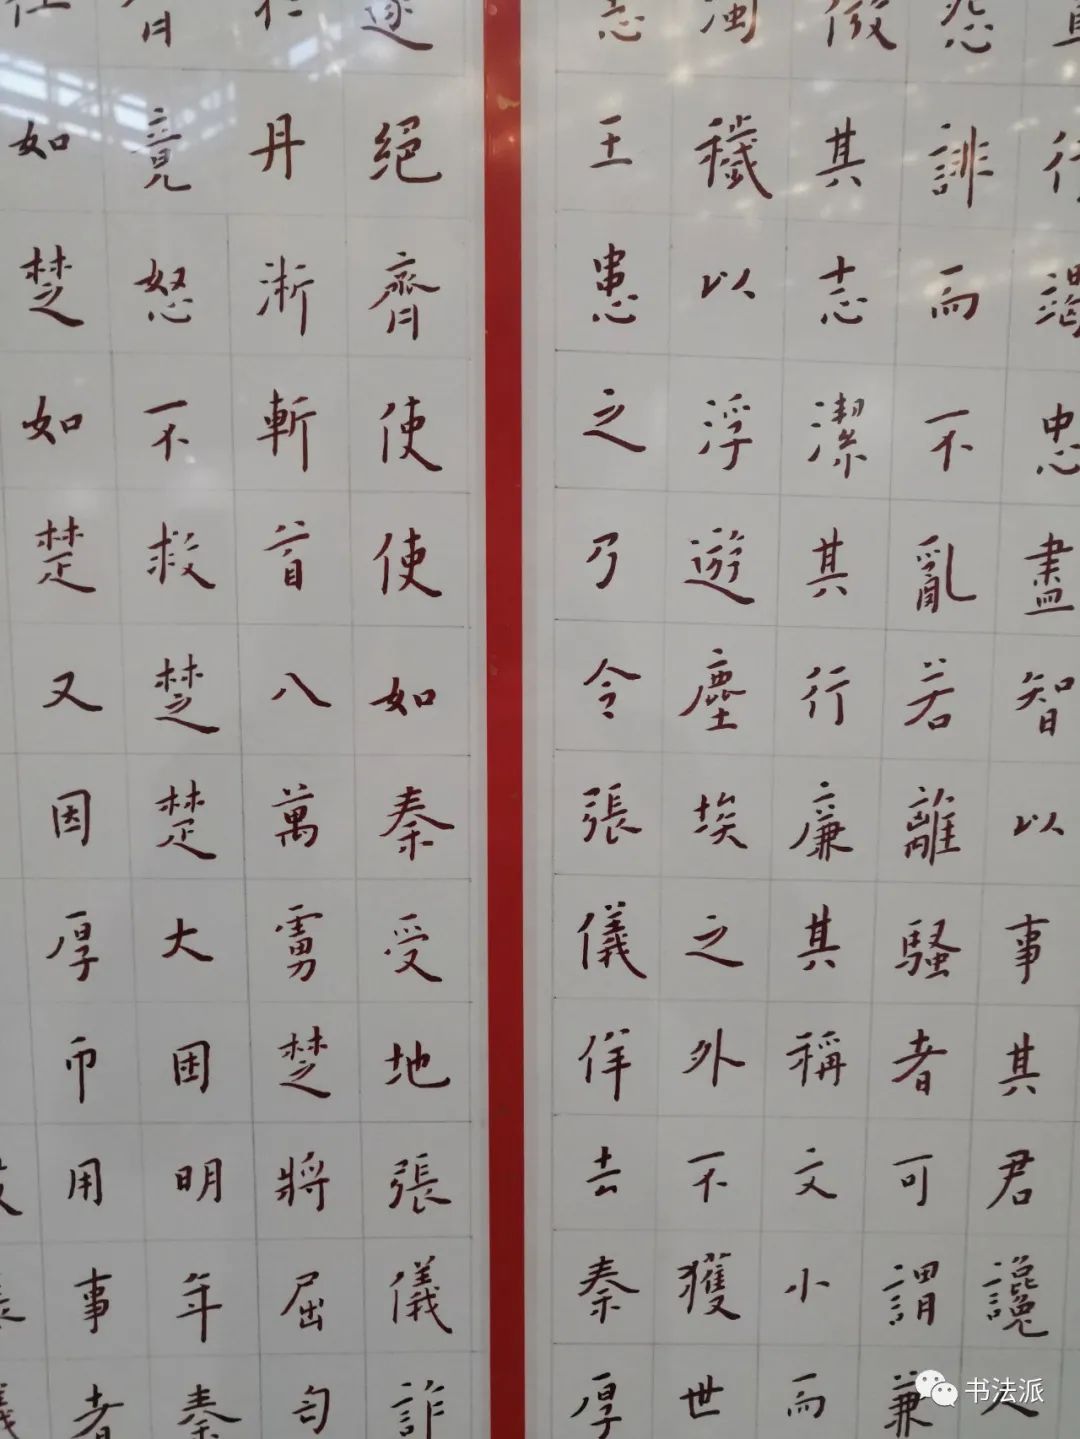 直行竭忠盡智以事其君讒人
怨誹而不亂若離騷者可謂兼
微其志潔其行廉其稱文小而
濁穢以浮遊塵埃之外不獲世
王患之乃令張儀佯去秦厚
遂絕齊使使如秦受地張儀詐
丹淅斬首八萬虜楚將屈匄
齊竟怒不救楚楚大困明年秦
如楚如楚又因厚币用事者
书法派